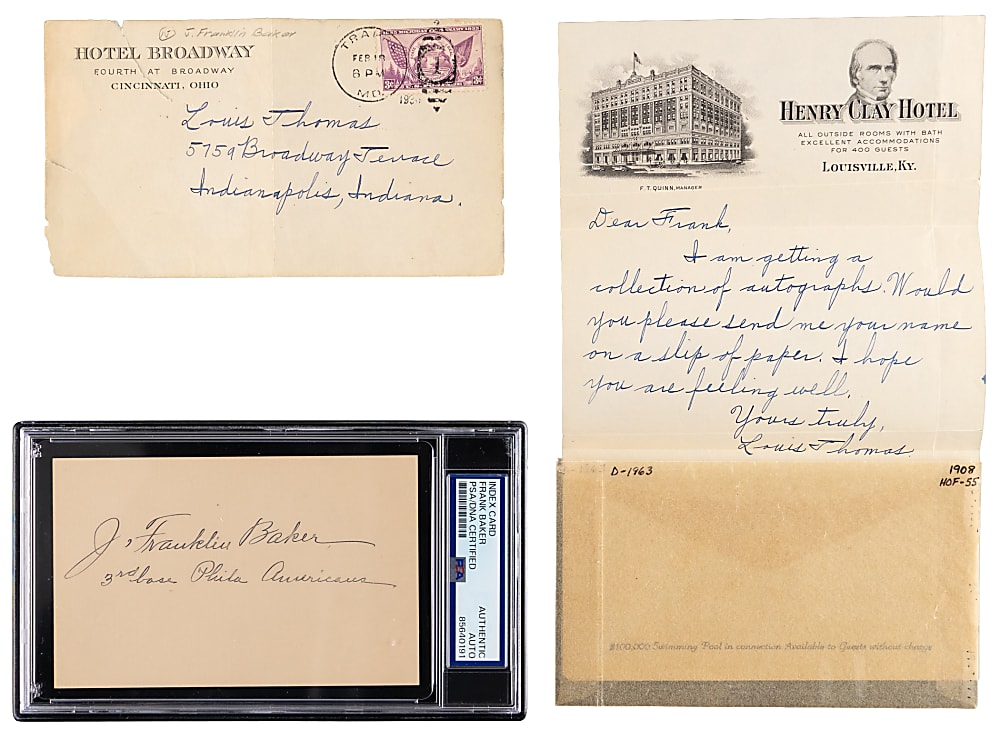 J. Franklin Baker
HOTEL BROADWAY
FOURTH AT BROADWAY
CINCINNATI, OHIO
FEB 18
6 PM
MD.
193
3c
Louis Thomas
5759 Broadway Terrace
Indianapolis, Indiana.
HENRY CLAY HOTEL
ALL OUTSIDE ROOMS WITH BATH
EXCELLENT ACCOMMODATIONS
FOR 400 GUESTS
LOUISVILLE, KY.
F. T. QUINN, MANAGER
Dear Frank,
I am getting a
collection of autographs. Would
you please send me your name
on a slip of paper. I hope
you are feeling well.
Yours truly,
Louis Thomas
D-1963
1908
HOF-55
$100,000 Swimming Pool in connection Available to Guests without charge
J. Franklin Baker
3rd base Phila Americans
INDEX CARD
FRANK BAKER
PSA/DNA CERTIFIED
PSA
AUTHENTIC
AUTO
85640191